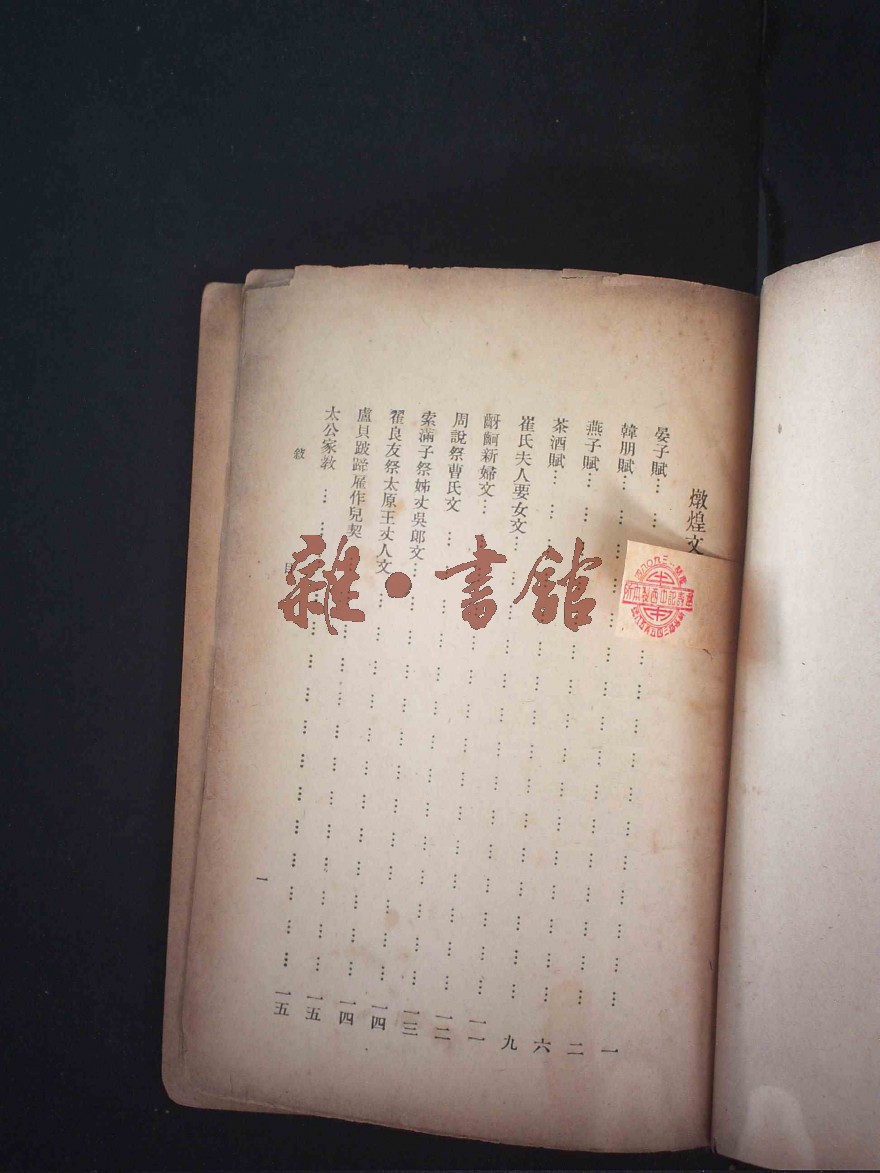 燉煌文
晏子賦… … … … … … … … … … … … … … 一
韓朋賦… … … … … … … … … … … … … … 二
燕子賦… … … … … … … … … … … … … … 六
茶酒賦… … … … … … … … … … … … … … 九
崔氏夫人要女文… … … … … … … … … … … … 一一
齖䶗新婦文… … … … … … … … … … … … … 一二
周說祭曹氏文 … … … … … … … … … … … … 一三
索滿子祭姊丈吳郎文… … … … … … … … … … … 一四
翟良友祭太原王丈人文… … … … … … … … … … 一四
盧貝跛蹄雇作兒契 … … … … … … … … … … 一五
太公家教 … … … … … … … … … … … … … 一五
敘
目
一
雜·書館